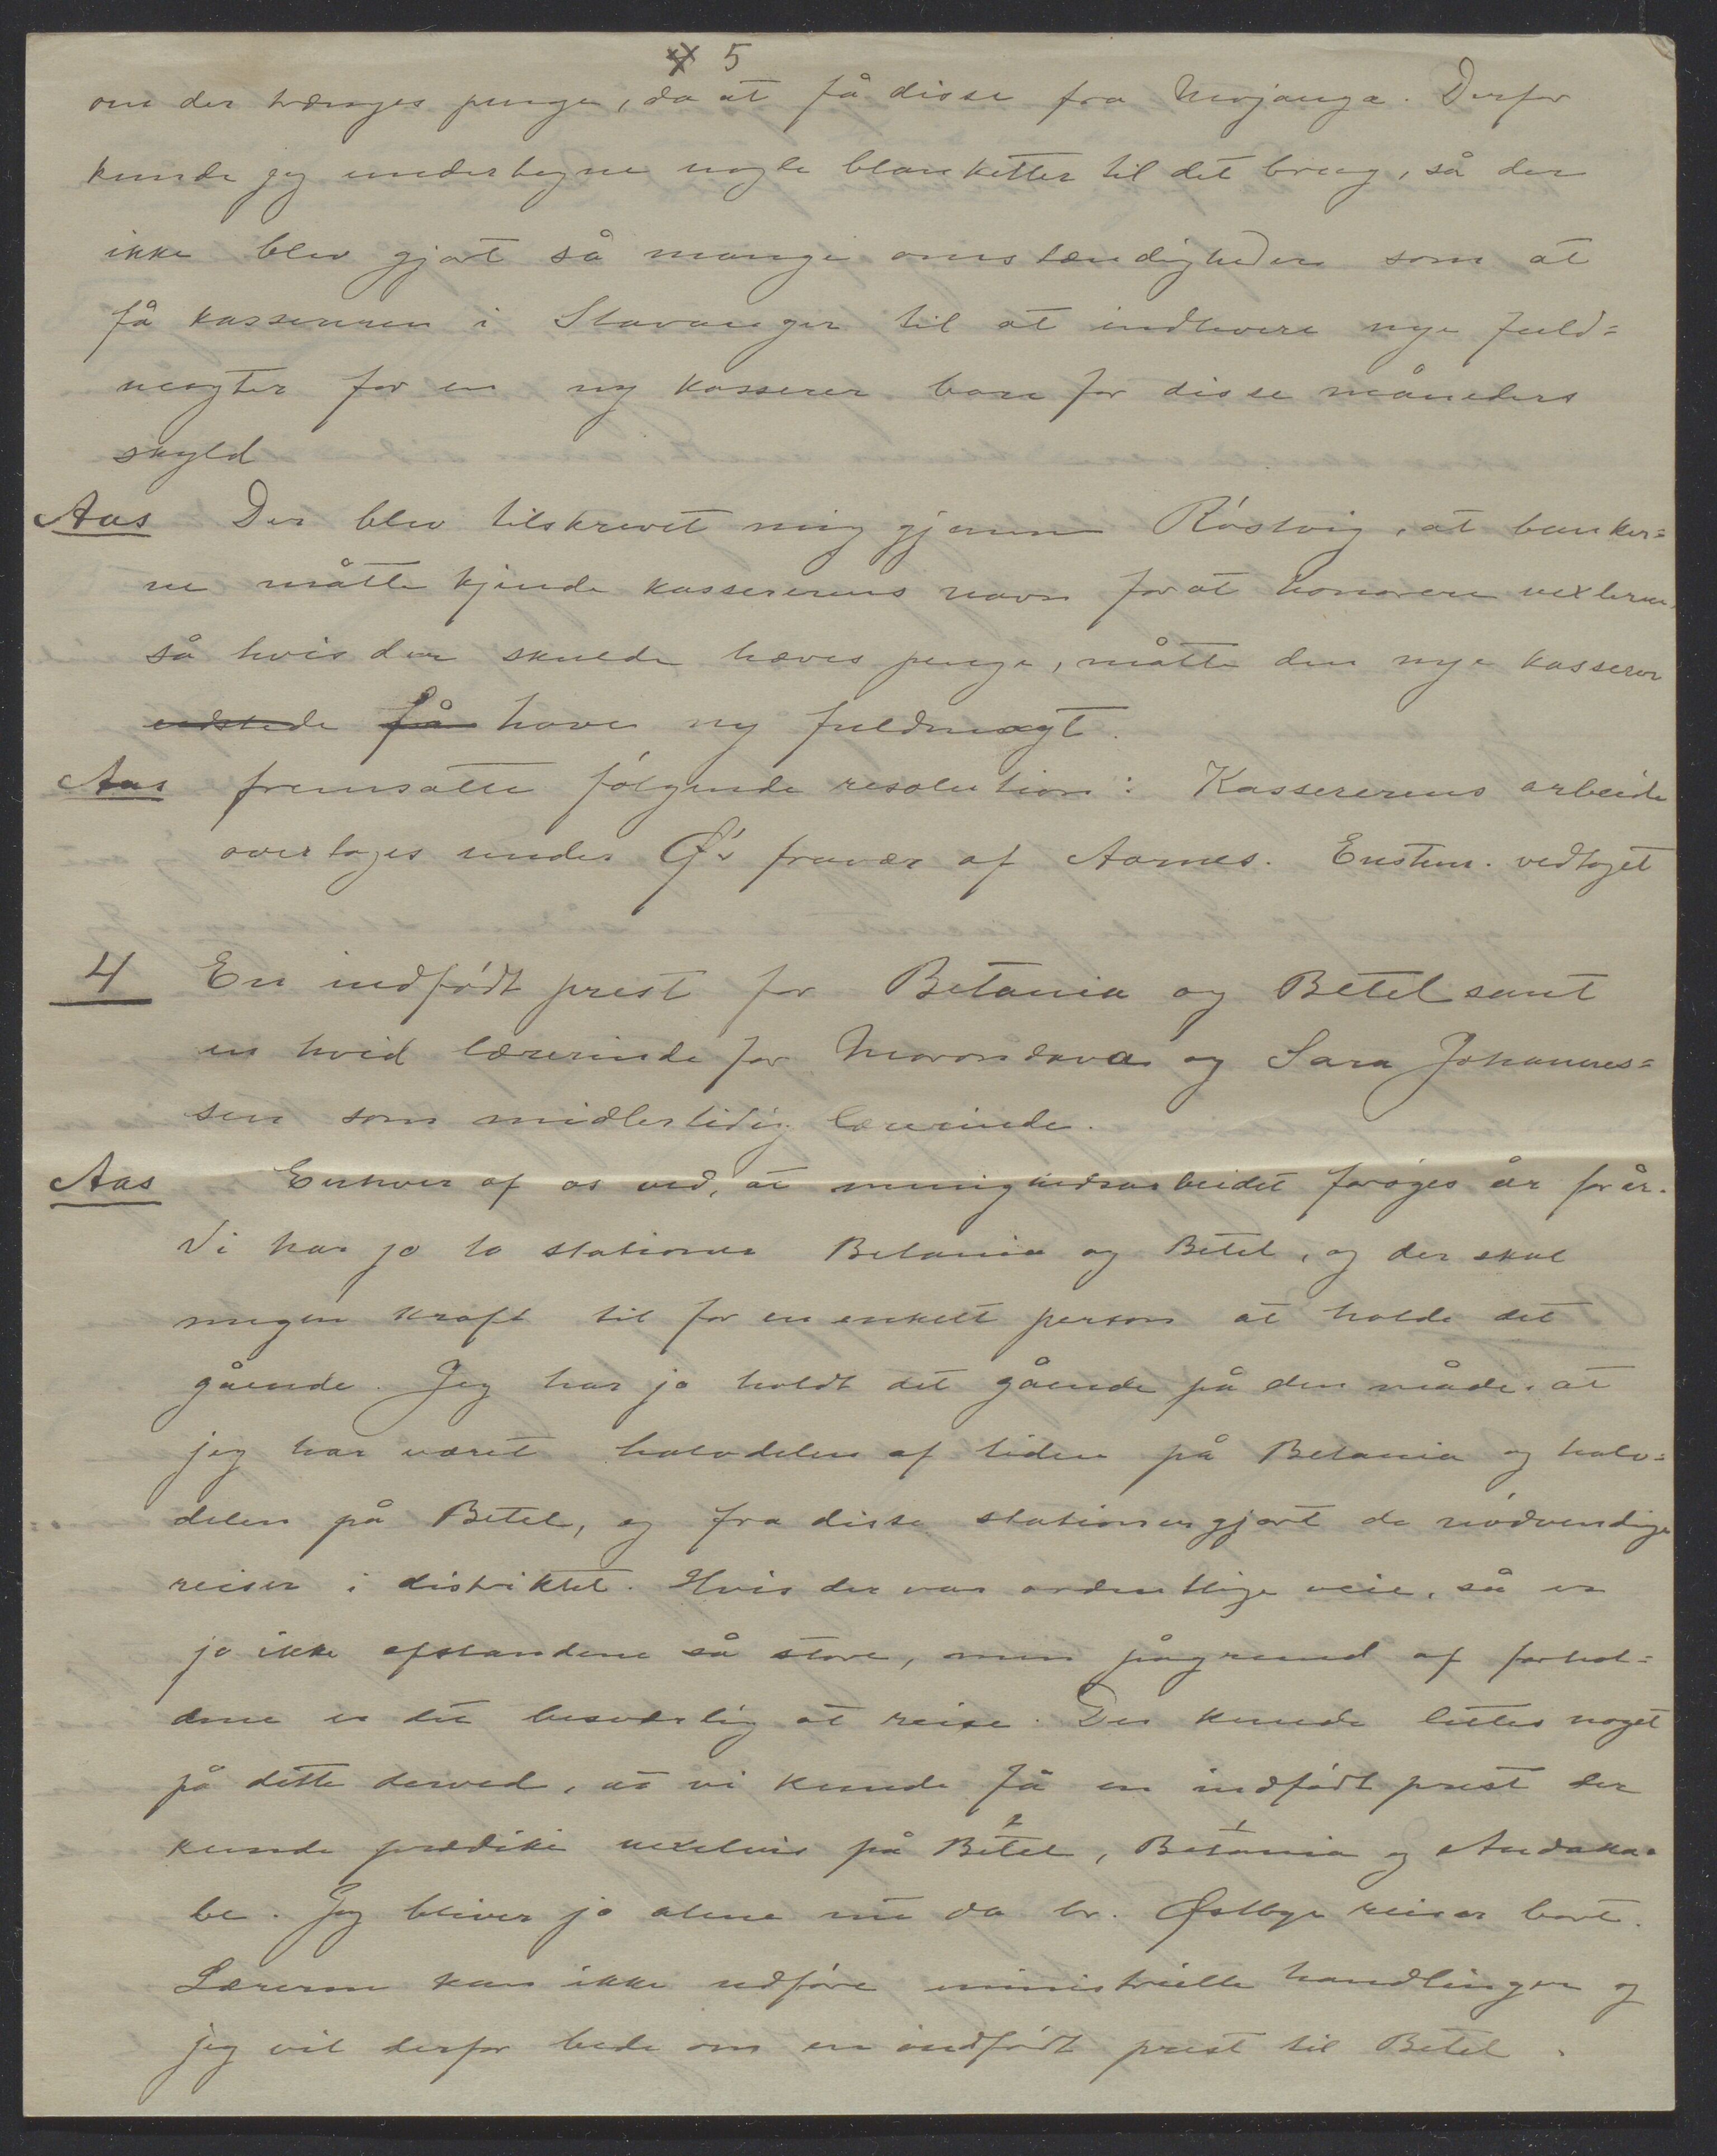 5
om der trænges penge, da at få disse fra Mojanga. Derfor
kunde jeg undertegne nogle blanketter til det brug, så der
ikke blev gjort så mange omstændigheder som at
få kassereren i Stavanger til at indlevere nye fuld=
magter for en ny kasserer bare for disse måneders
skyld
Aas Der blev tilskrevet mig gjennem Röstvig, at banker=
ne måtte kjende kassererens navn for at honorere vexlerne,
så hvis der skulde hæves penge, måtte den nye kasserer
udstede få have ny fuldmagt.
Aas fremsatte følgende resolution: Kassererens arbeide
overtages under Ø's fravær af Aarnes. Enstem. vedtaget
4 En indfødt prest for Betania og Betel samt
en hvid lærerinde for Morondava og Sara Johannes=
sen som midlertidig lærerinde.
Aas Enhver af os ved, at menighedsarbeidet forøges år for år.
Vi har jo to stationer Betania og Betel, og der skal
megen kraft til for en enkelt person at holde det
gående. Jeg har jo holdt det gående på den måde, at
jeg har været halvdelen af tiden på Betania og halv=
delen på Betel, og fra disse stationer gjort de nødvendige
reiser i distriktet. Hvis der var ordentlige veie, så er
jo ikke afstandene så store, men pågrund af forhol=
dene er det besværlig at reise. Der kunde lettes noget
på dette derved, at vi kunde få en indfødt prest der
kunde prædike vexelvis på Betel, Betania og Andaka=
be. Jeg bliver jo alene nu da br. Østbye reiser bort.
Læreren kan ikke udføre ministrielle handlinger og
jeg vil derfor bede om en indfødt prest til Betel.